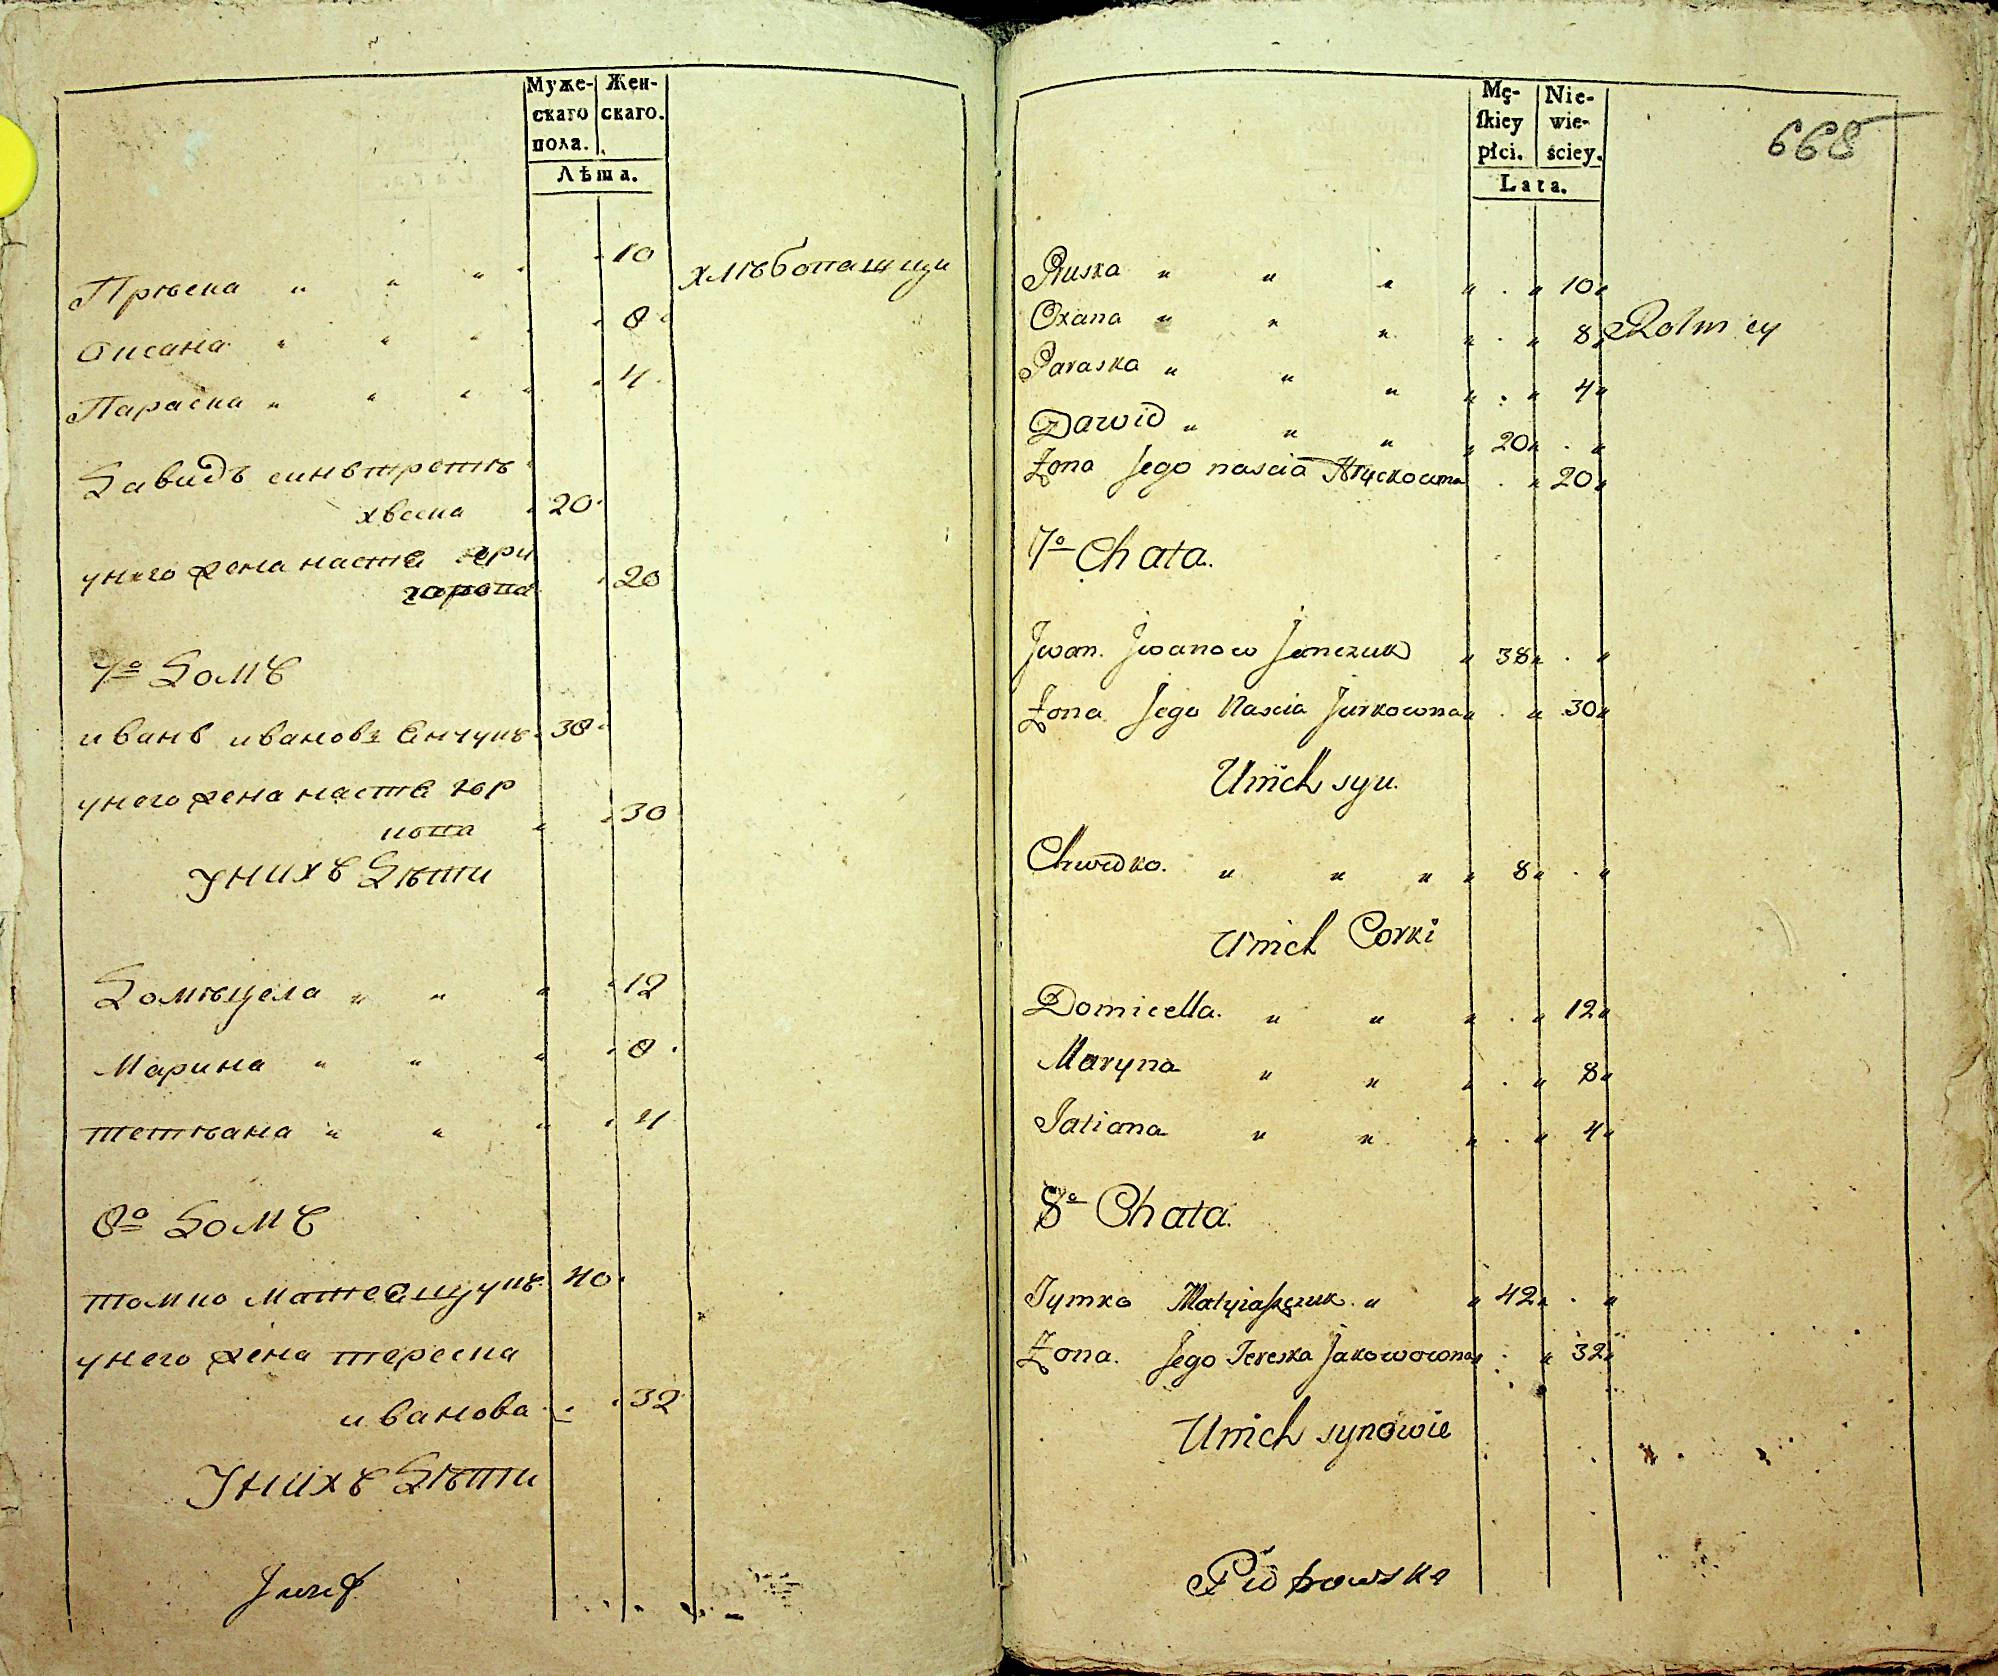 Муже-
скаго
пола.
Жен-
скаго.
Лѣта.
Прѣска " " " " 10
хлѣбопашци
Оксана " " " " 8
Параска " " " " 4
Давидъ синъ третѣ
хвеска 20
унего жена настя гри
20
7о Домъ
иванъ ивановъ Янчукъ 38
унего жена настя юр
кова " 30
Унихъ Дѣти
Домѣцела " " " 12
Марина " " " 8
тетѣана " " " 4
8о Домъ
томко матеящукъ 40
унего жена тереска
иванова 32
Унихъ Дѣти
Jozef
Mę-
skiey
płci.
Nie-
wie-
ściey.
Lata.
668
Pruska " " " " . " 10 "
Oxana " " " " . " 8 "
Rolnicy
Paraska " " " " . " 4 "
Dawid " " " " 20 " . "
Żona Jego nascia Hryckowna . " 20 "
7o Chata.
Jwan. Jwanow Janczuk " 38 " . "
Żona Jego Nascia Jurkowna " . " 30 "
Unich syn.
Chwedko. " " " " 8 " . "
Unich Corki
Domicella. " " " . " 12 "
Maryna " " " . " 8 "
Tatiana " " " . " 4 "
8o Chata.
Tymko Matyiaszczuk. " " 42 " . "
Żona. Jego Tereska Jakowowna " . " 32 "
Unich synowie
Piotrowski